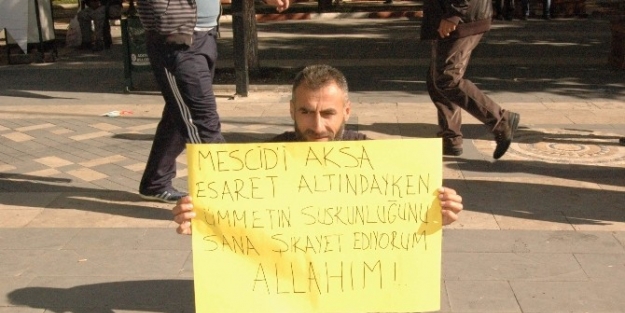 MESCİD'İ AKSA
ESARET ALTINDAYKEN
ÜMMETİN SUSKUNLUĞUNU
SANA ŞİKAYET EDİYORUM
ALLAHIM!